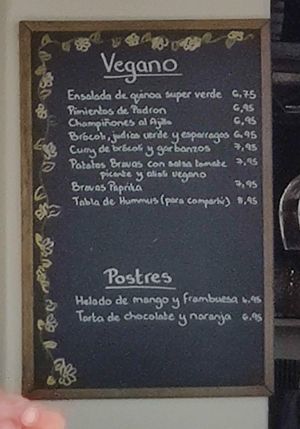 Vegano
Ensalada de quinoa super verde 6,75
Pimientos de Padron 6,95
Champiñones al Ajillo 6,95
Brócoli, judias verde y esparragos 6,95
Curry de brócoli y garbanzos 7,95
Patatas Bravas con salsa tomate 7,95
picante y alioli vegano
Bravas Paprika 7,95
Tabla de Hummus (para compartir) 8,95
Postres
Helado de mango y frambuesa 6.95
Tarta de chocolate y naranja 6.95